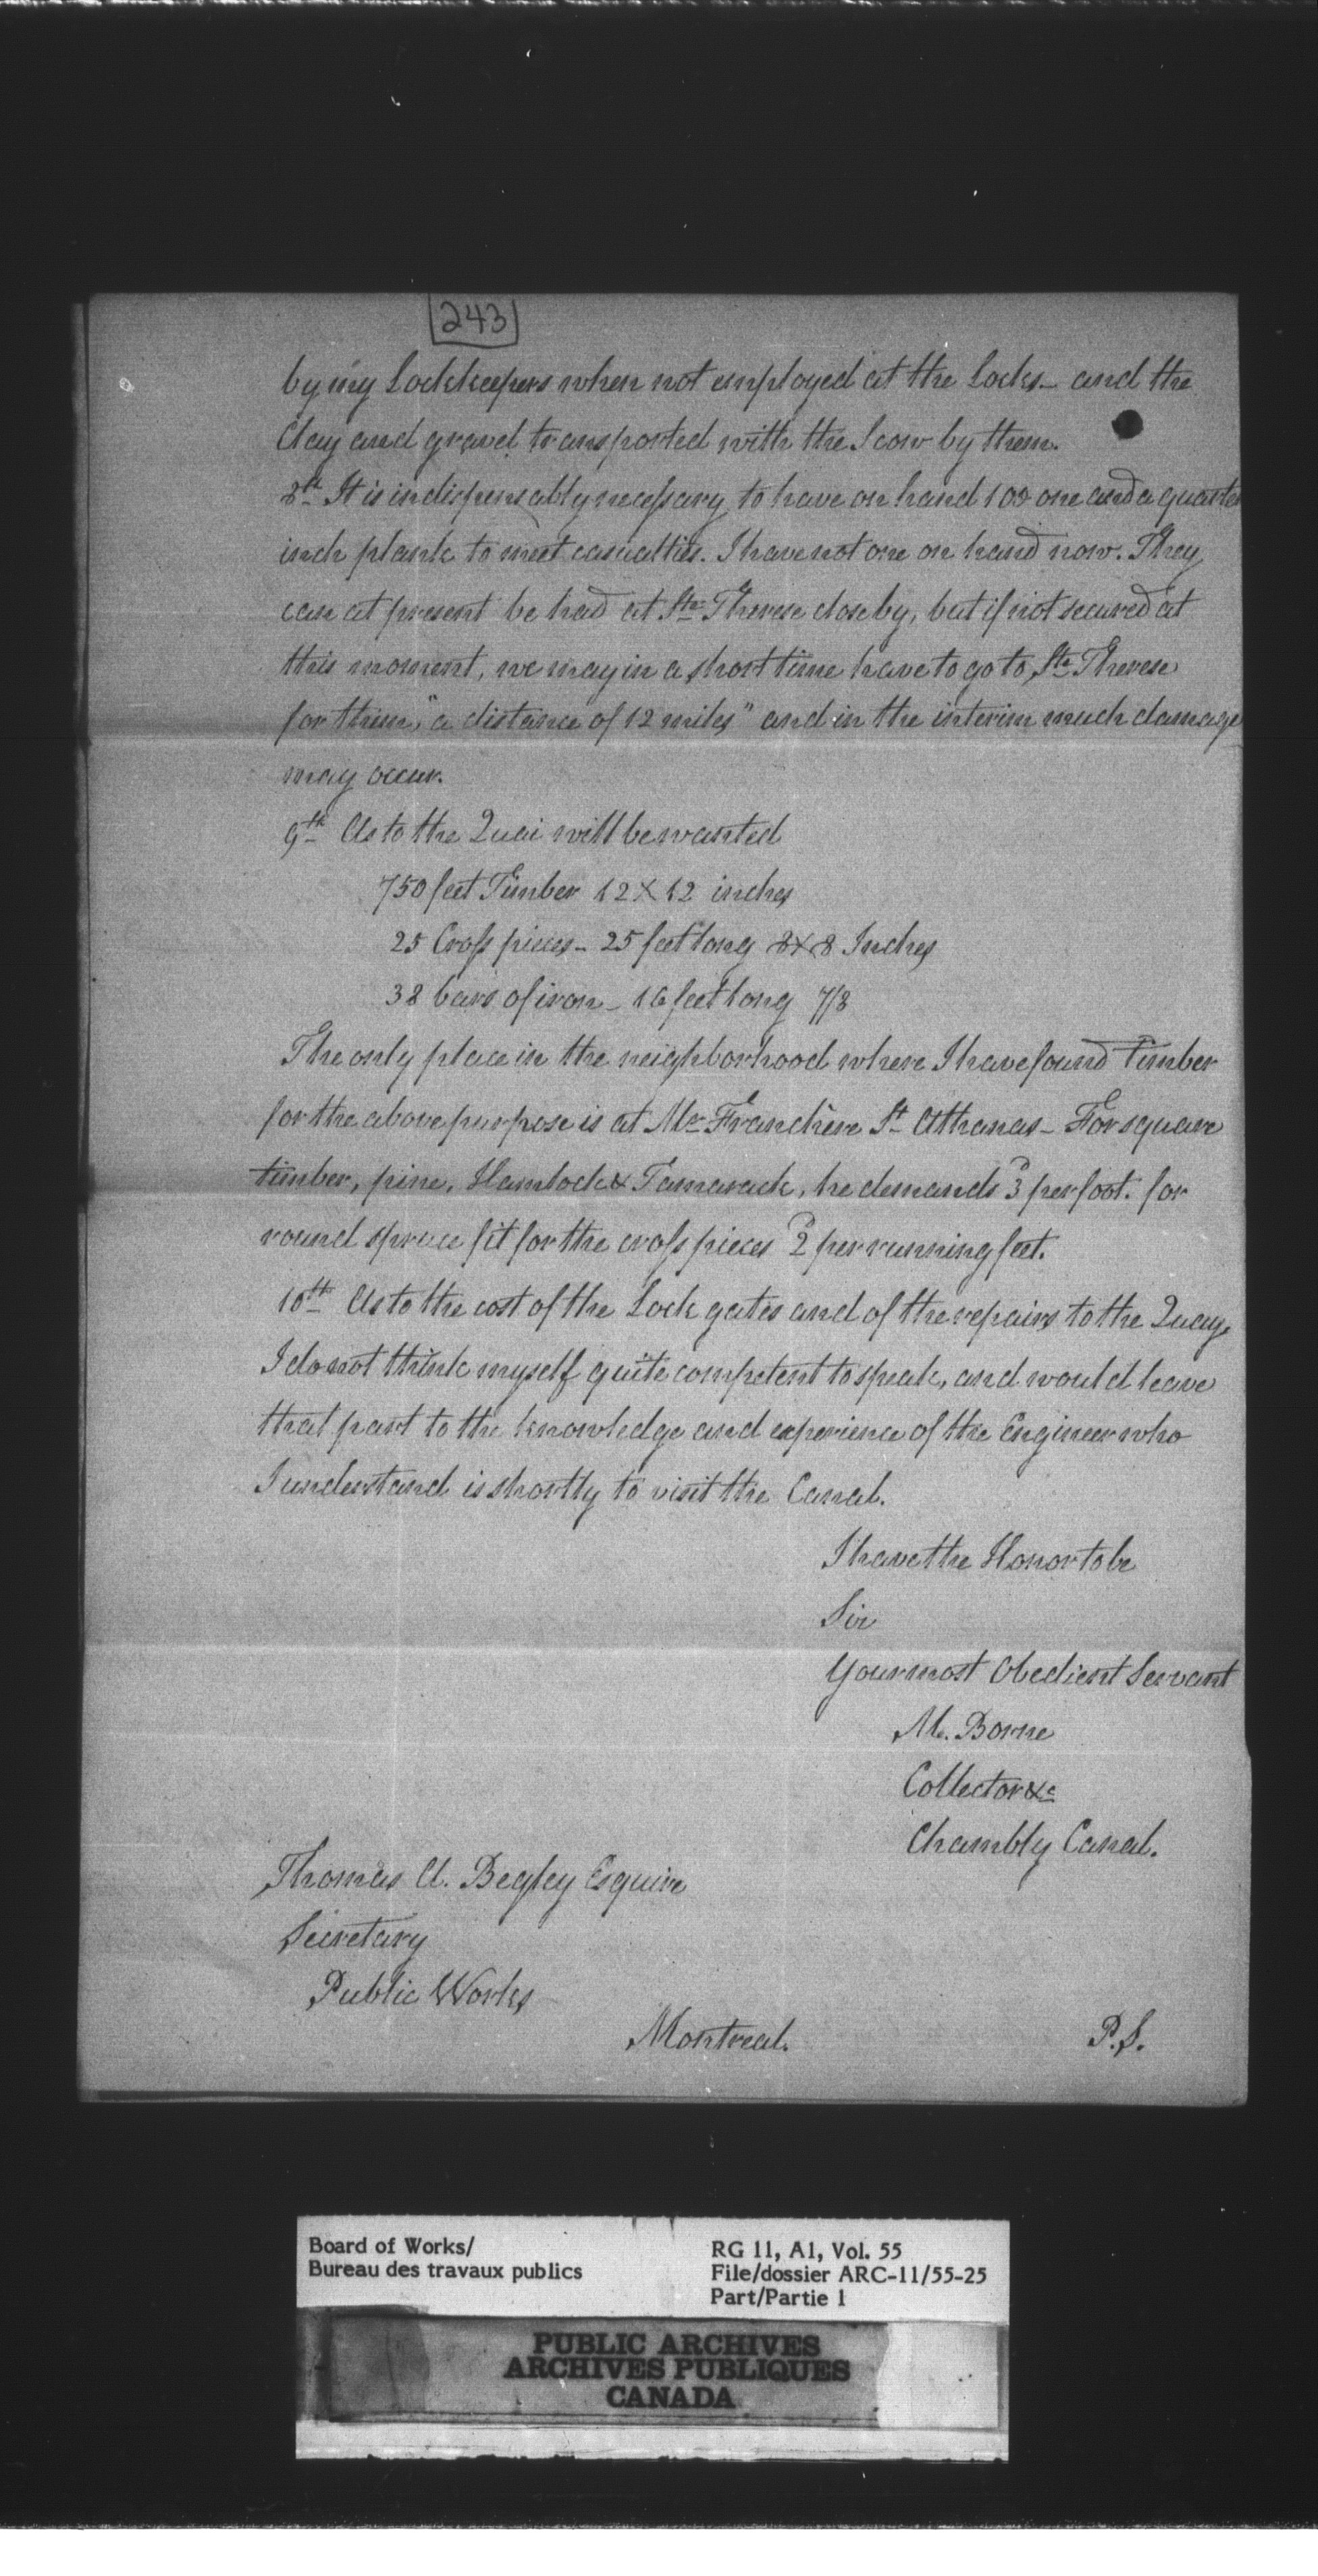 243
by my Lockkeepers when not employed at the Locks - and the
Clay and gravel transported with the Scow by them.
8th It is indispensably necessary to have on hand 100 one and a quarter
inch plank to meet casualties. I have not one on hand now. They
can at present be had at Ste Therese close by, but if not secured at
this moment, we may in a short time have to go to Ste Therese
for them, "a distance of 12 miles" and in the interim much damage
may occur.
9th As to the Quai will be wanted
750 feet Timber 12 X 12 inches
25 Cross pieces - 25 feet long 8 X 8 Inches
38 bars of iron - 16 feet long 7/8
The only place in the neighborhood where I have found timber
for the above purpose is at Mr Franchère St Athanas - For square
timber, pine, Hamlock & Tamarack, he demands 3d per foot. for
round spruce fit for the cross pieces 2d per running feet.
10th As to the cost of the Lock gates and of the repairs to the Quay,
I do not think myself quite competent to speak, and would leave
that part to the knowledge and experience of the Engineer who
I understand is shortly to visit the Canal.
I have the Honor to be
Sir
Your most Obedient Servant
M. Borne
Collector &c
Chambly Canal.
Thomas A. Begley Esquire
Secretary
Public Works
Montreal.
P.S.
Board of Works/
Bureau des travaux publics
RG 11, A1, Vol. 55
File/dossier ARC-11/55-25
Part/Partie 1
PUBLIC ARCHIVES
ARCHIVES PUBLIQUES
CANADA